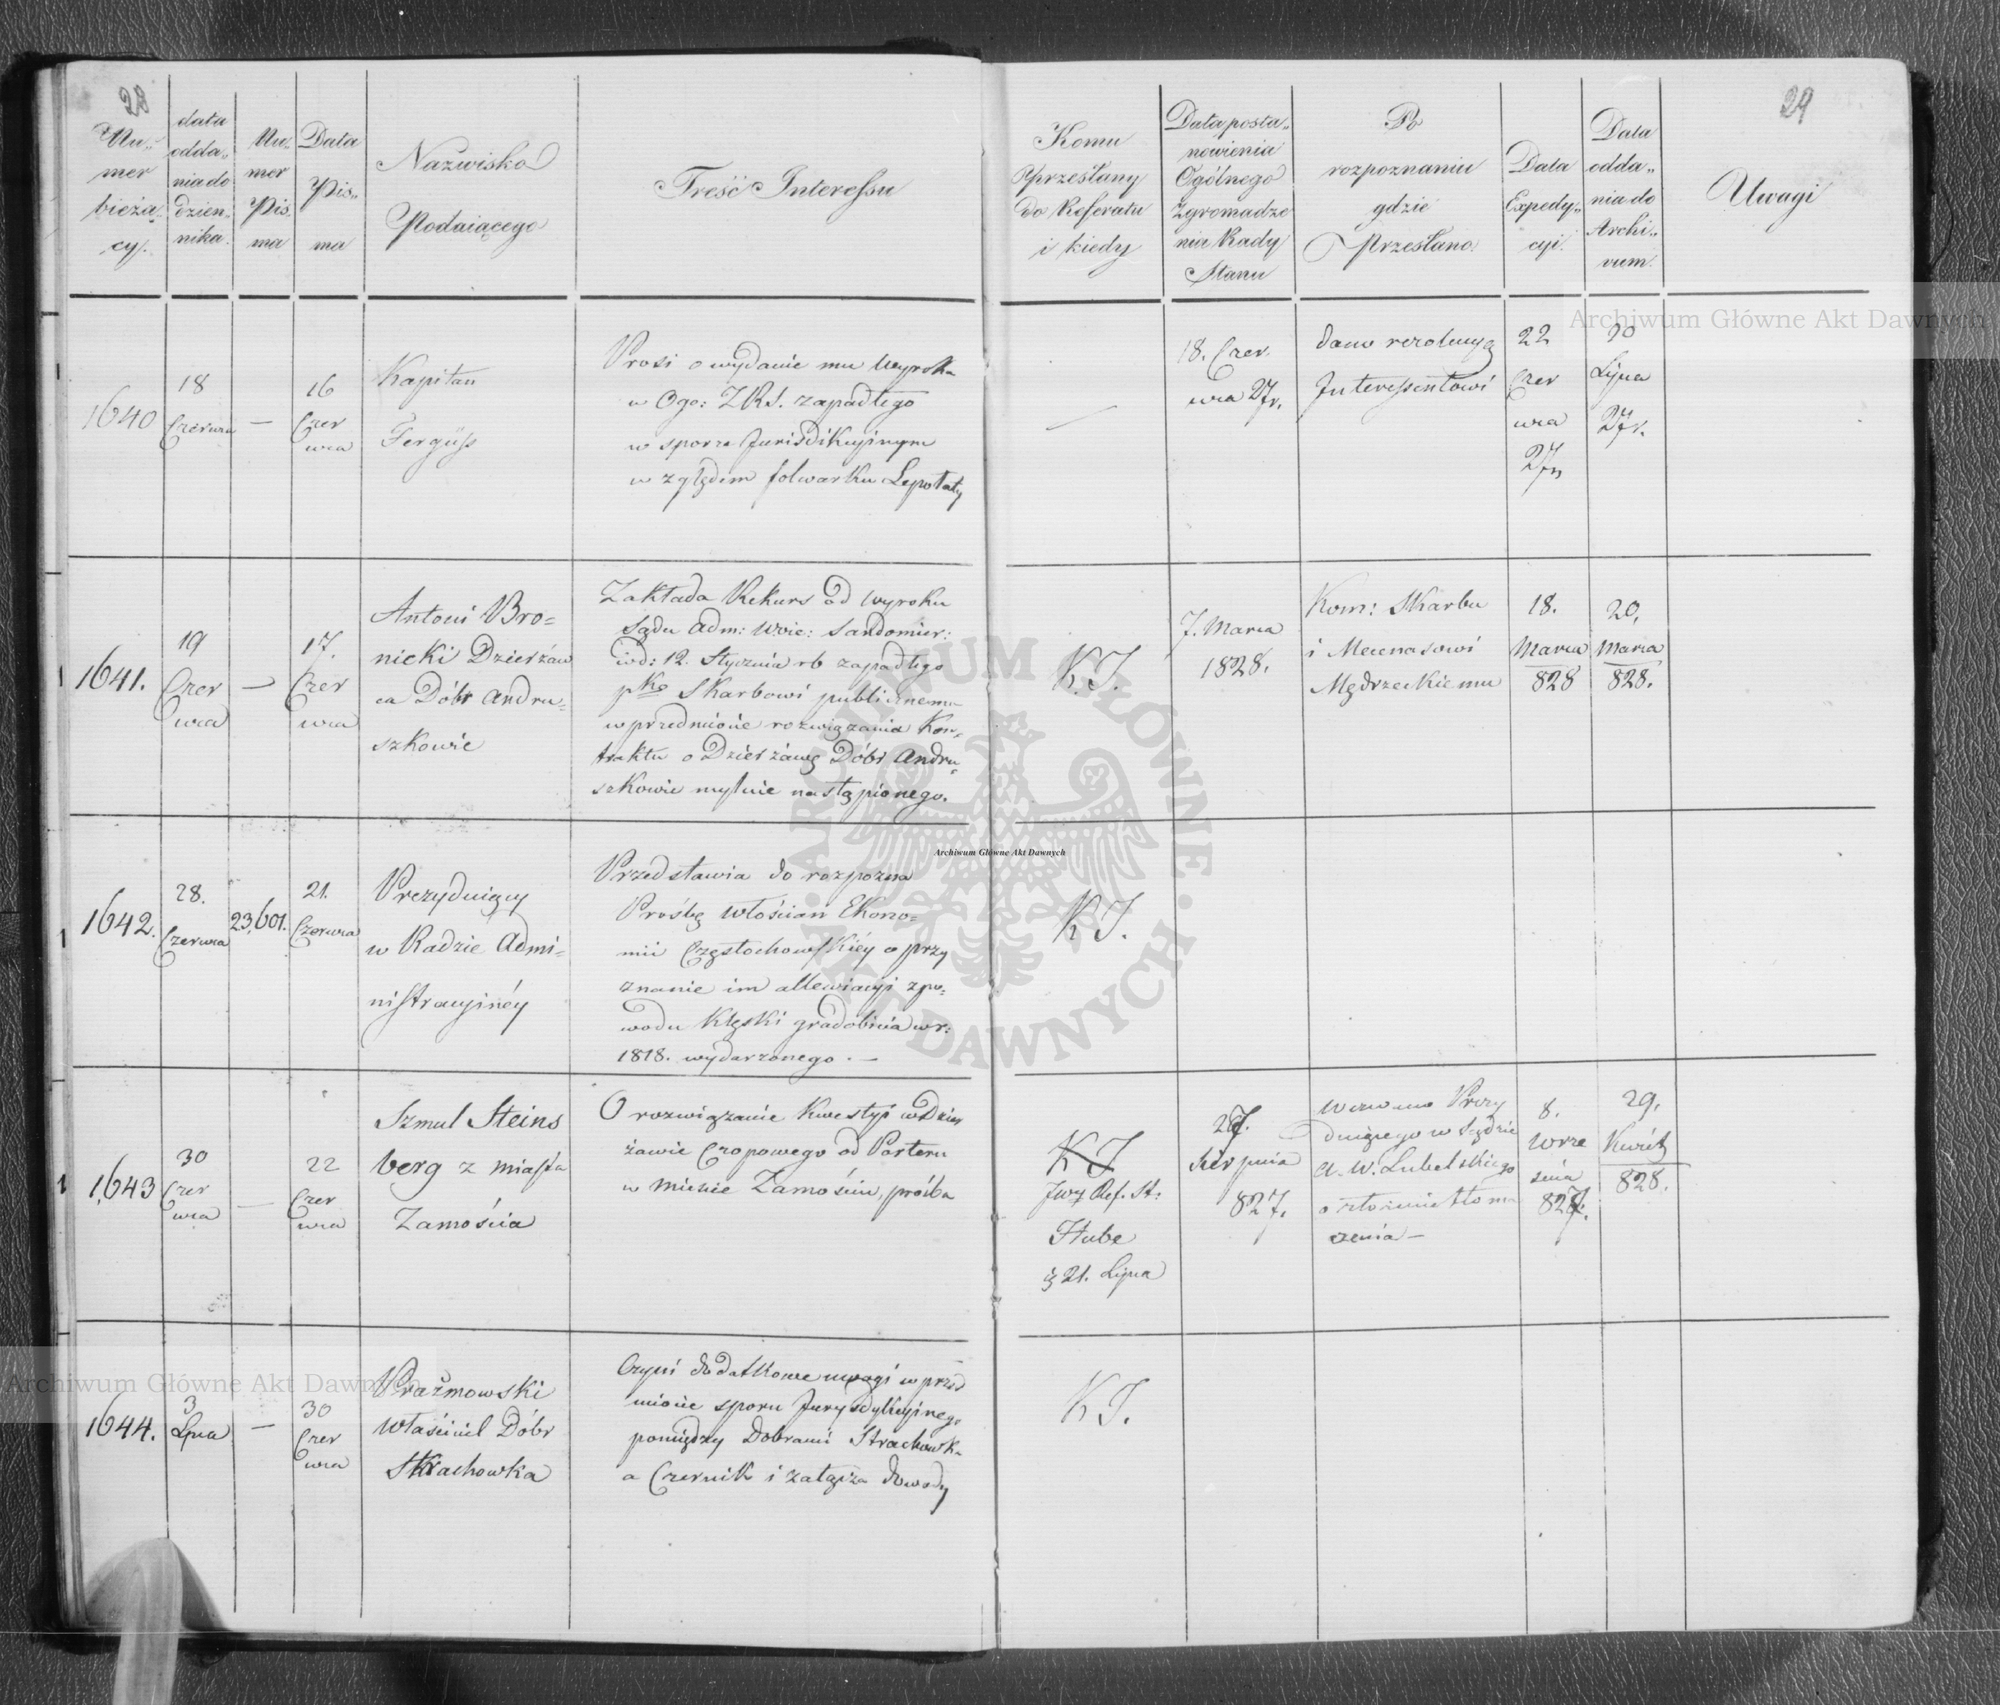 28
Nu-
mer
bieżą-
cy.
data
odda-
nia do
dzien-
nika.
Nu-
mer
Pis-
ma
Data
Pis-
ma
Nazwisko
Podaiącego
Treść Interessu
Komu
Przesłany
do Referatu
i kiedy
Data posta-
nowienia
Ogólnego
Zgromadze
nia Rady
Stanu
Po
rozpoznaniu
gdzie
Przesłano.
Data
Expedy-
cyi.
Data
odda-
nia do
Archi-
vum.
Uwagi
29
1640
18
Czerwca
—
16
Czer
wca
Kapitan
Ferguss
Prosi o wydanie mu Wyroku
w Ogo: ZRS. zapadłego
w sporze Jurisdikcyinym
względem folwarku Lepołaty
—
18. Czer.
wca 27r.
dano rezolucyą
Interessentowi
22
Czer
wca
27r
20
Lipca
27r.
1641.
19
Czer
wca
—
17.
Czer
wca
Antoni Bro=
nicki Dzierżaw
ca Dóbr Andru=
szkowic
Zakłada Rekurs od Wyroku
Sądu Adm: Woie: Sandomier:
d: 12. Stycznia rb zapadłego
pko Skarbowi publicznemu
w przedmiocie rozwiązania Kon=
traktu o Dzierżawę Dóbr Andru=
szkowic mylnie nastąpionego.
K. J.
7. Marca
1828.
Kom: Skarbu
i Mecenasowi
Mędrzeckiemu
18.
Marca
828
20.
Marca
828.
1642.
28.
Czerwca
23,601.
21.
Czerwca
Prezyduiący
w Radzie Admi=
nistracyinéy
Przedstawia do rozpozna
Prośbę Włościan Ekono=
mii Częstochowskiéy o przy
znanie im allewiacyi z po=
wodu Klęski gradobicia w r:
1818. wydarzonego. —
K J.
1643
30
Czer
wca
—
22
Czer
wca
Szmul Steins
berg z miasta
Zamościa
O rozwiązanie Kwestyi w Dzier
żawie Czopowego od Porteru
w Mieście Zamościu, prośba
K J
Jwy Ref. St:
Hube
d 21. Lipca
27.
Sierpnia
827.
Wezwano Prezy
duiącego w Sądzie
A. W. Lubelskiego
o złożenie tłoma
czenia —
8.
Wrze
śnia
827.
29.
Kwiet
828.
1644.
3
Lipca
—
30
Czer
wca
Prażmowski
Właściciel Dóbr
Strachowka
Czyni dodatkowe uwagi w przed
miocie sporu Jurysdykcyinego
pomiędzy Dobrami Strachowka
a Czernik i załącza dowody
K J.
Archiwum Główne Akt Dawnych
Archiwum Główne Akt Dawnych
Archiwum Główne Akt Dawnych
ARCHIWUM GŁÓWNE · AKT DAWNYCH ·